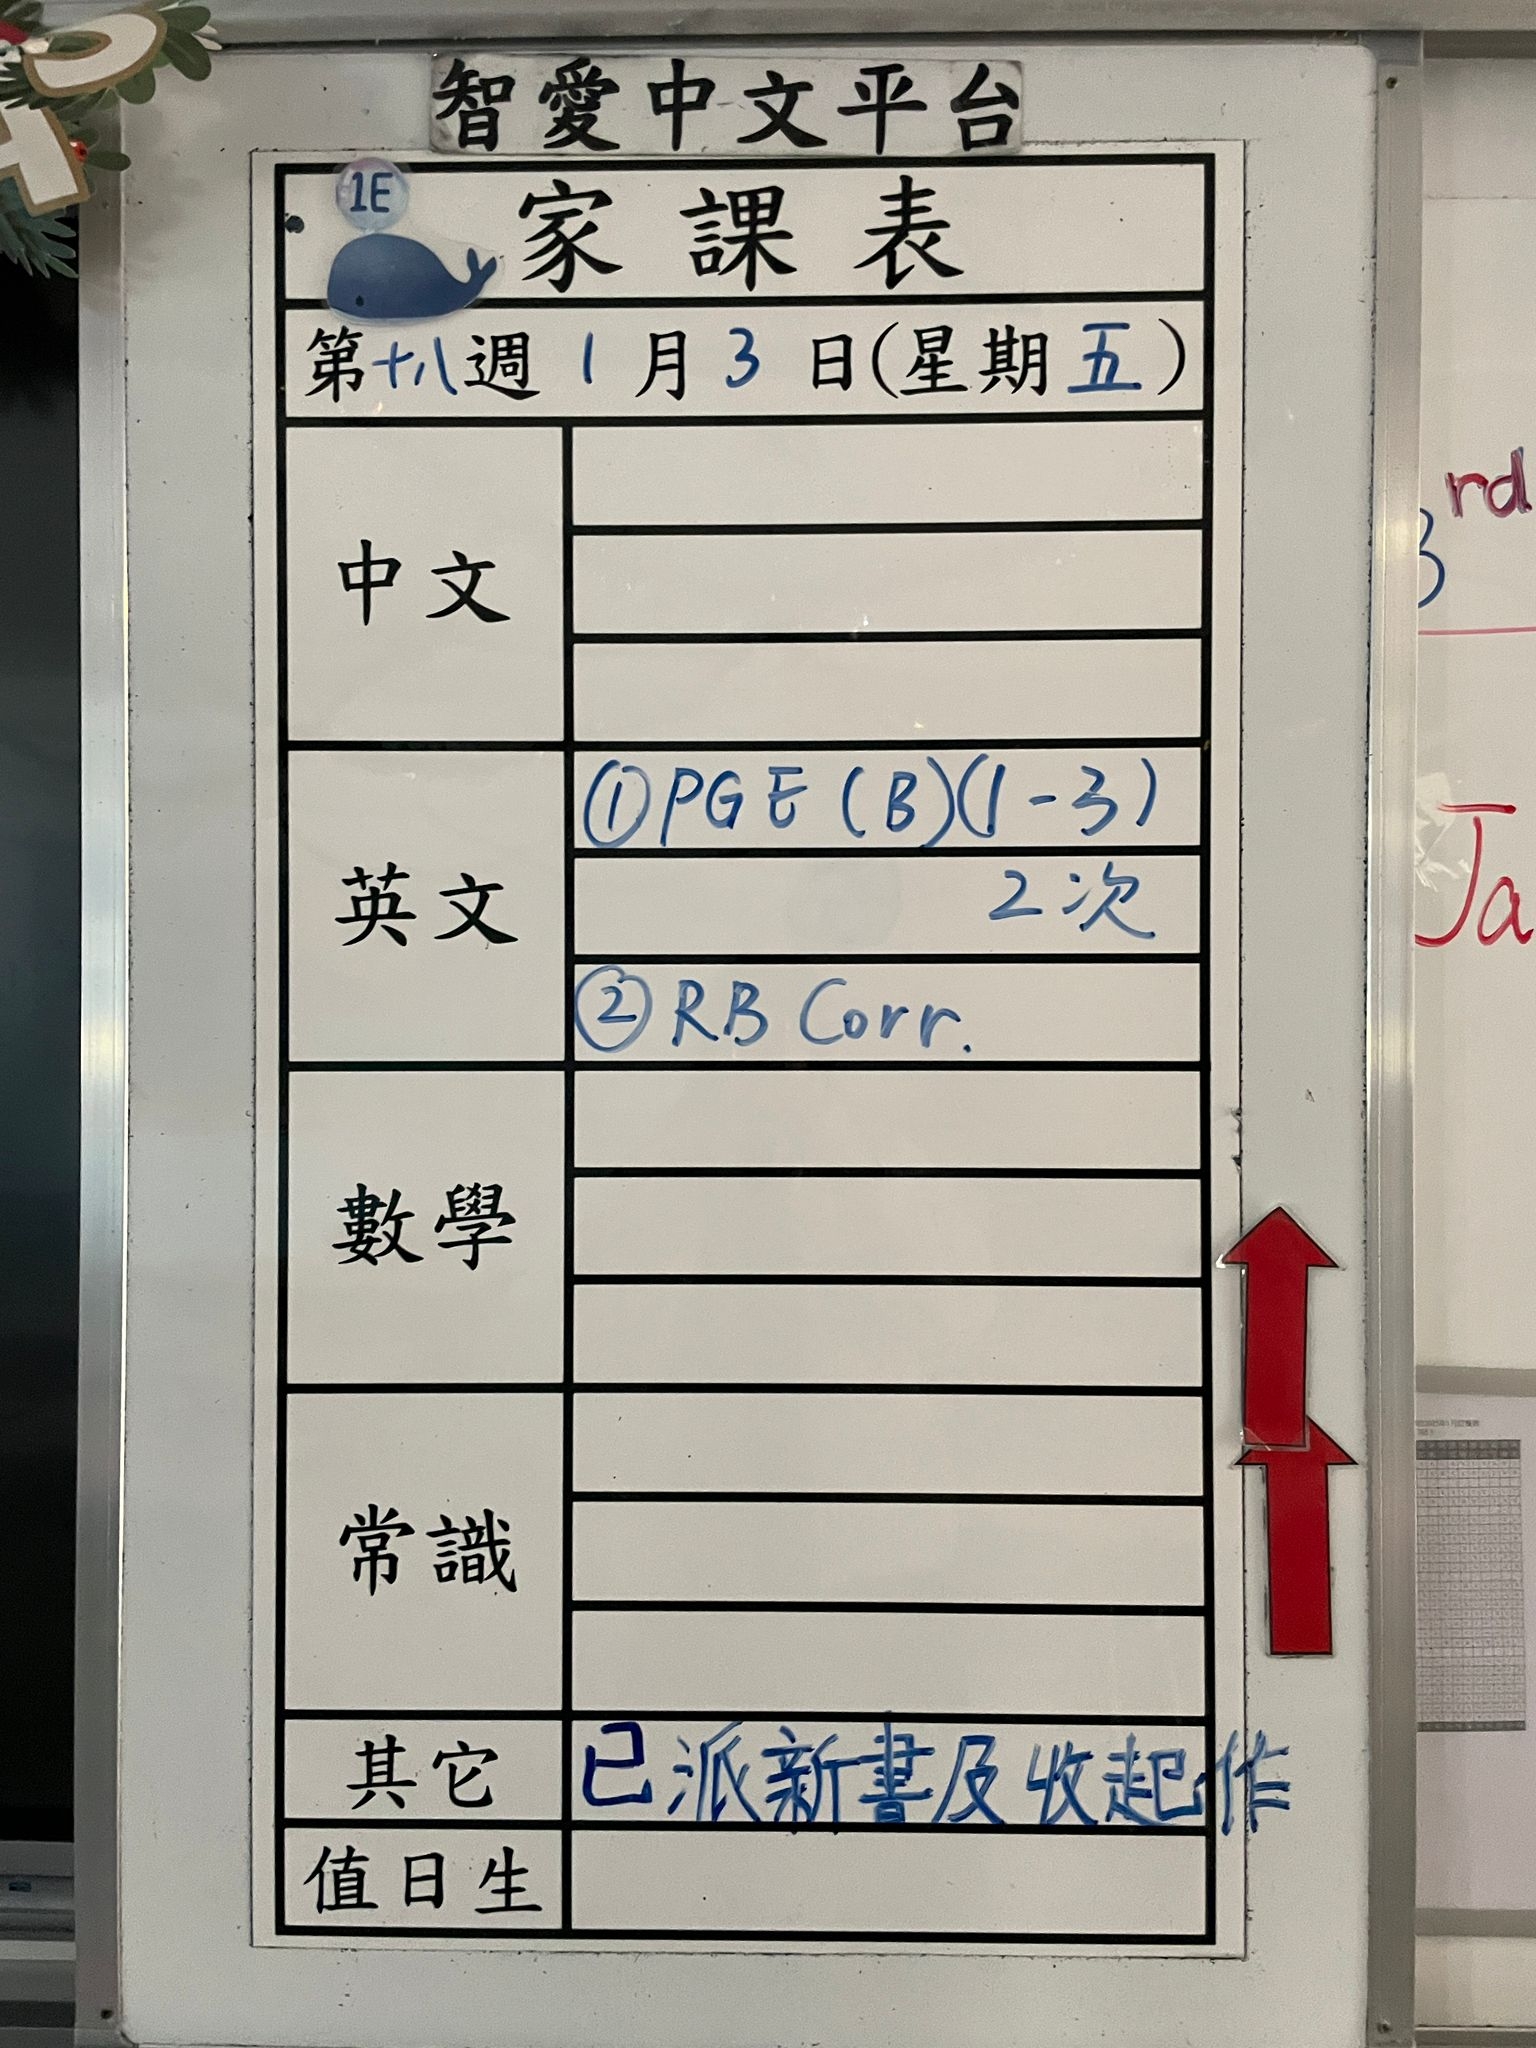 智愛中文平台
1E
家課表
第十八週 1月3日(星期五)
中文
英文
①PGE (B)(1-3)
2次
②RB Corr.
數學
常識
其它
已派新書及收起作
值日生
3rd
Ja